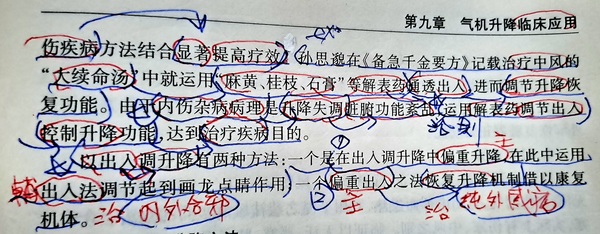 第九章 气机升降临床应用
伤疾病方法结合显著提高疗效。孙思邈在《备急千金要方》记载治疗中风的
“大续命汤”中就运用“麻黄、桂枝、石膏”等解表药通透出入，进而调节升降恢
复功能。由于内伤杂病病理是升降失调脏腑功能紊乱，运用解表药调节出入，
控制升降功能，达到治疗疾病目的。
以出入调升降有两种方法：一个是在出入调升降中偏重升降，在此中运用
出入法调节起到画龙点睛作用；一个偏重出入之法恢复升降机制借以康复
机体。
① 主
辅
治 内外合邪 ② 主 治 纯外感病